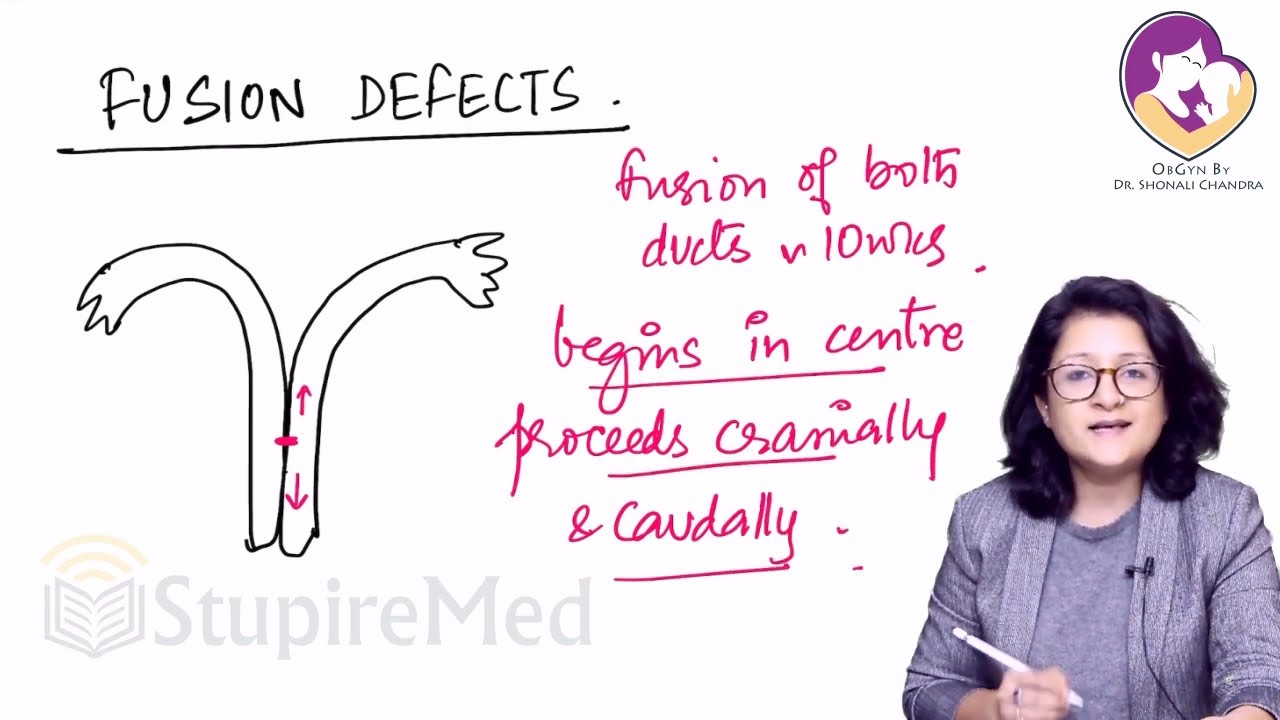 FUSION DEFECTS.
fusion of both
ducts ~ 10 wks.
begins in centre
proceeds cranially
& caudally.
ObGyn By
Dr. Shonali Chandra
StupireMed